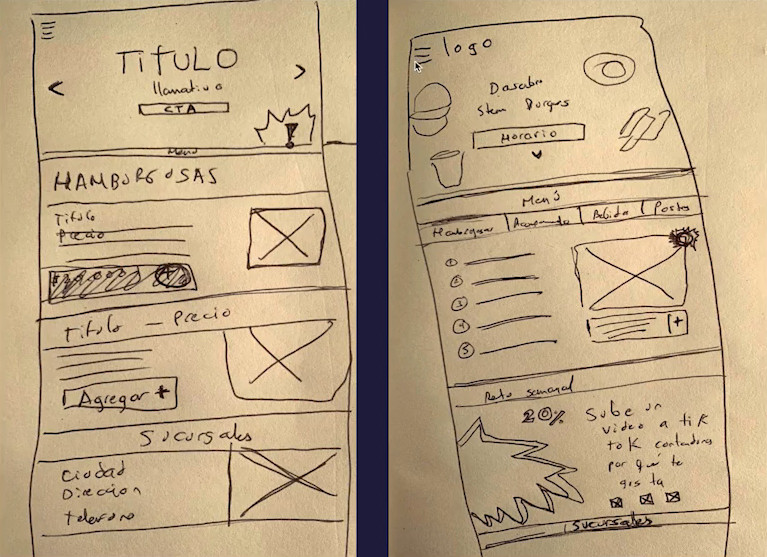 TITULO
llamativo
CTA
!
Menú
HAMBURGUSAS
Titulo
Precio
Titulo — Precio
Agregar +
Sucursales
Ciudad
Dirección
Telefono
logo
Descubre
Stem Burgers
Horario
Menú
Bebida
Postes
1
2
3
4
5
+
Reto semanal
20%
Sube un
video a tik
tok contandonos
por qué te
gusta
Sucursales